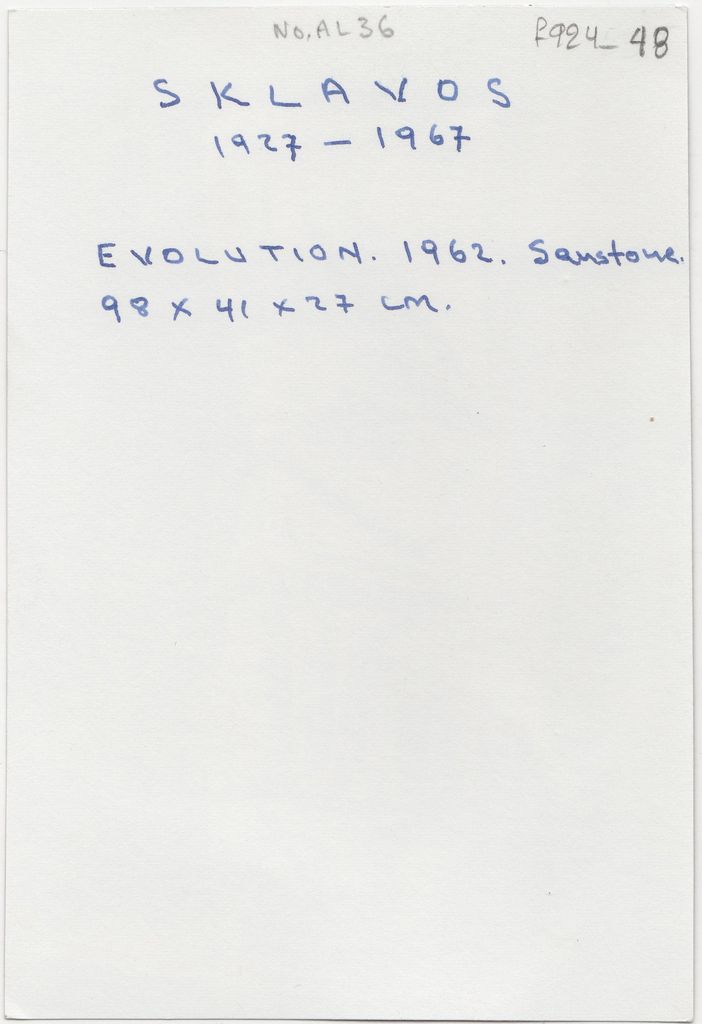 No. AL36
F924-48
SKLAVOS
1927 – 1967
EVOLUTION. 1962. Sanstone.
98 x 41 x 27 cm.